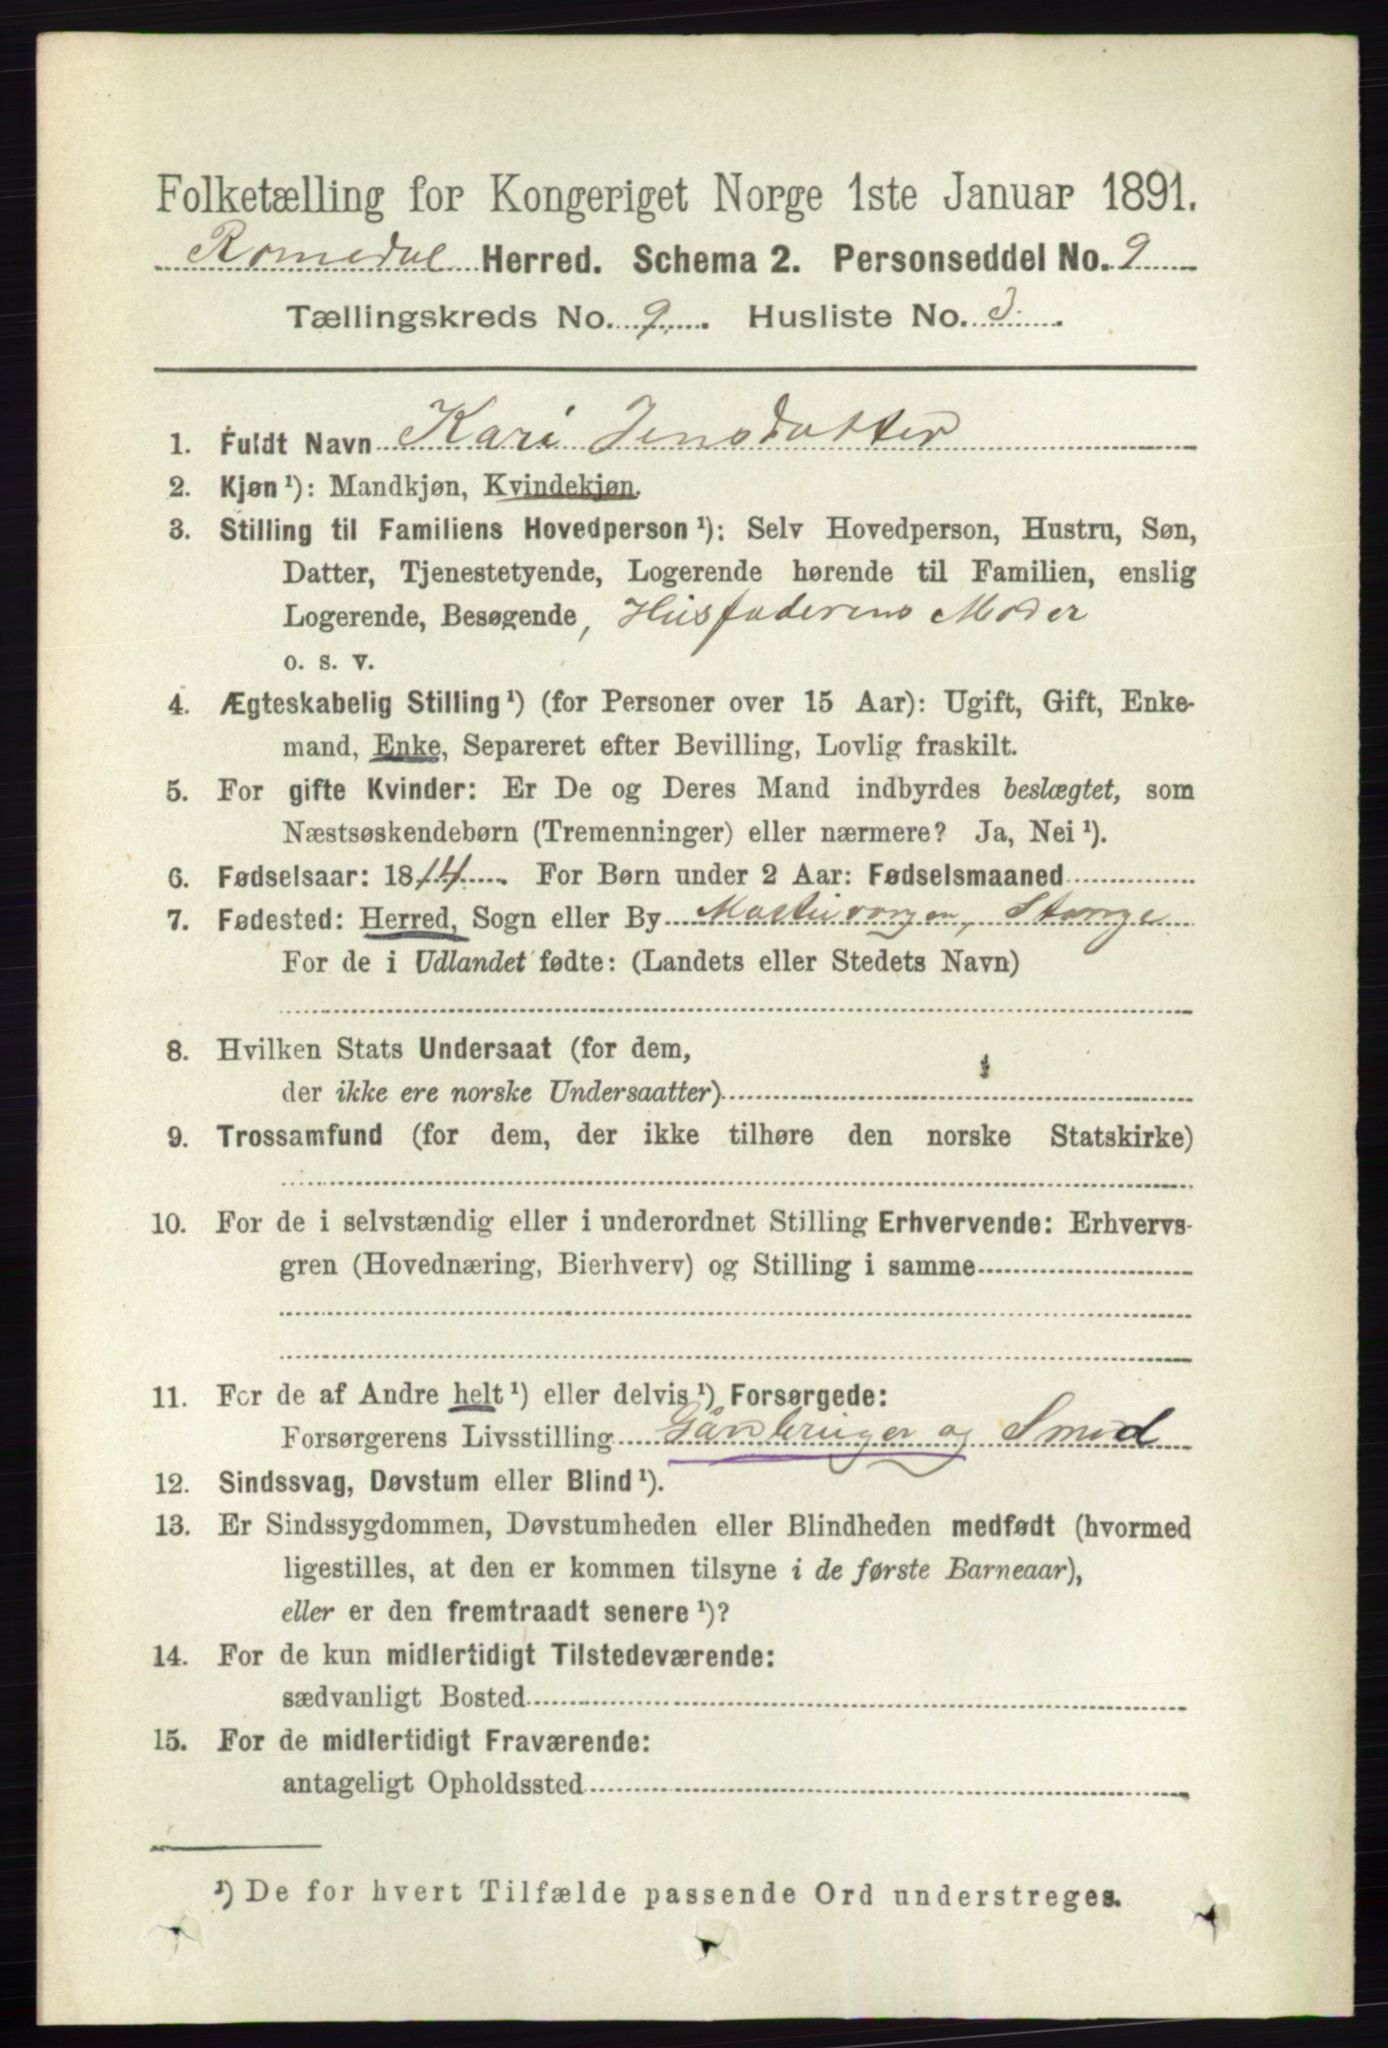 Folketælling for Kongeriget Norge 1ste Januar 1891.
Romedal Herred. Schema 2. Personseddel No. 9
Tællingskreds No. 9. Husliste No. 3.
1. Fuldt Navn Kari Jensdatter
2. Kjøn ¹): Mandkjøn, Kvindekjøn.
3. Stilling til Familiens Hovedperson ¹): Selv Hovedperson, Hustru, Søn,
Datter, Tjenestetyende, Logerende hørende til Familien, enslig
Logerende, Besøgende, Husfaderens Moder
o. s. v.
4. Ægteskabelig Stilling ¹) (for Personer over 15 Aar): Ugift, Gift, Enke-
mand, Enke, Separeret efter Bevilling, Lovlig fraskilt.
5. For gifte Kvinder: Er De og Deres Mand indbyrdes beslægtet, som
Næstsøskendebørn (Tremenninger) eller nærmere? Ja, Nei ¹).
6. Fødselsaar: 1814. For Børn under 2 Aar: Fødselsmaaned
7. Fødested: Herred, Sogn eller By Stange
For de i Udlandet fødte: (Landets eller Stedets Navn)
8. Hvilken Stats Undersaat (for dem,
der ikke ere norske Undersaatter)
9. Trossamfund (for dem, der ikke tilhøre den norske Statskirke)
10. For de i selvstændig eller i underordnet Stilling Erhvervende: Erhvervs-
gren (Hovednæring, Bierhverv) og Stilling i samme
11. For de af Andre helt ¹) eller delvis ¹) Forsørgede:
Forsørgerens Livsstilling Gårdbruger og Smed
12. Sindssvag, Døvstum eller Blind ¹).
13. Er Sindssygdommen, Døvstumheden eller Blindheden medfødt (hvormed
ligestilles, at den er kommen tilsyne i de første Barneaar),
eller er den fremtraadt senere ¹)?
14. For de kun midlertidigt Tilstedeværende:
sædvanligt Bosted
15. For de midlertidigt Fraværende:
antageligt Opholdssted
¹) De for hvert Tilfælde passende Ord understreges.